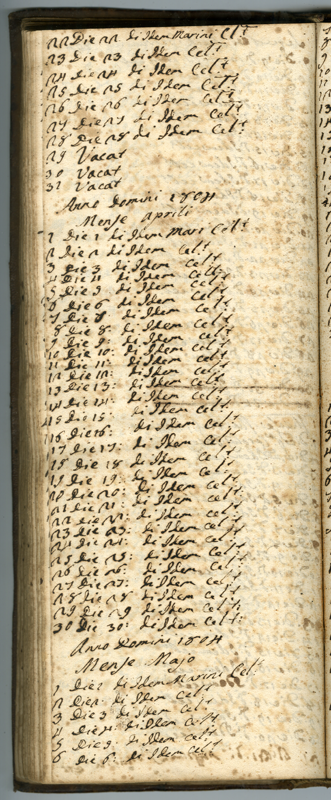 22 Die 22 di Idem Marini Celt
23 Die 23 di Idem Celt
24 die 24 di Idem Celt
25 Die 25 di Idem Celt
26 Die 26 di Idem Celt
27 Die 27 di Idem Celt
28 Die 28 di Idem Celt
29 Vacat
30 Vacat
31 Vacat
Anno Domini 1804
Mense Aprili
1 Die 1 di Idem Mari Celt
2 Die 2 di Idem Celt
3 Die 3 di Idem Celt
4 Die 4 di Idem Celt
5 Die 5 di Idem Celt
6 Die 6 di Idem Celt
7 Die 7 di Idem Celt
8 Die 8: di Idem Celt
9 Die 9: di Idem Celt
10 Die 10: di Idem Celt
11 Die 11: di Idem Celt
12 Die 12: di Idem Celt
13 Die 13: di Idem Celt
14 Die 14: di Idem Celt
15 Die 15: di Idem Celt
16 Die 16: di Idem Celt
17 Die 17: di Idem Celt
18 Die 18 di Idem Celt
19 Die 19: di Idem Celt
20 Die 20: di Idem Celt
21 Die 21: di Idem Celt
22 Die 22: di Idem Celt
23 Die 23: di Idem Celt
24 Die 24: di Idem Celt
25 Die 25: di Idem Celt
26 Die 26: di Idem Celt
27 Die 27: di Idem Celt
28 Die 28 di Idem Celt
29 Die 29 di Idem Celt
30 Die 30: di Idem Celt
Anno Domini 1804
Mense Majo
1 Die 1 di Idem Marini Celt
2 Die 2 di Idem Celt
3 Die 3 di Idem Celt
4 Die 4: di Idem Celt
5 Die 5: di Idem Celt
6 Die 6: di Idem Celt